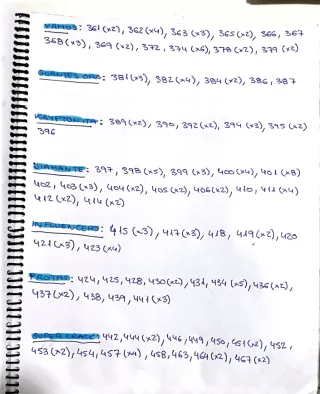 VAMOS: 361(x2), 362(x4), 363(x3), 365(x2), 366, 367
368(x3), 369(x2), 372, 374(x6), 378(x2), 379(x2)
GUANTES ORO: 381(x3), 382(x4), 384(x2), 386, 387
KRYPTONITA: 389(x2), 390, 392(x2), 394(x3), 395(x2)
396
DIAMANTE: 397, 398(x5), 399(x3), 400(x4), 401(x8)
402, 403(x3), 404(x2), 405(x2), 406(x2), 410, 411(x4)
412(x2), 414(x2)
INFLUENCERS: 415(x3), 417(x3), 418, 419(x2), 420
421(x3), 423(x4)
PROTAS: 424, 425, 428, 430(x2), 431, 434(x5), 436(x2),
437(x2), 438, 439, 441(x3)
SUPER CRACK: 442, 444(x2), 446, 449, 450, 451(x2), 452,
453(x2), 454, 457(x4), 458, 463, 464(x2), 467(x2)